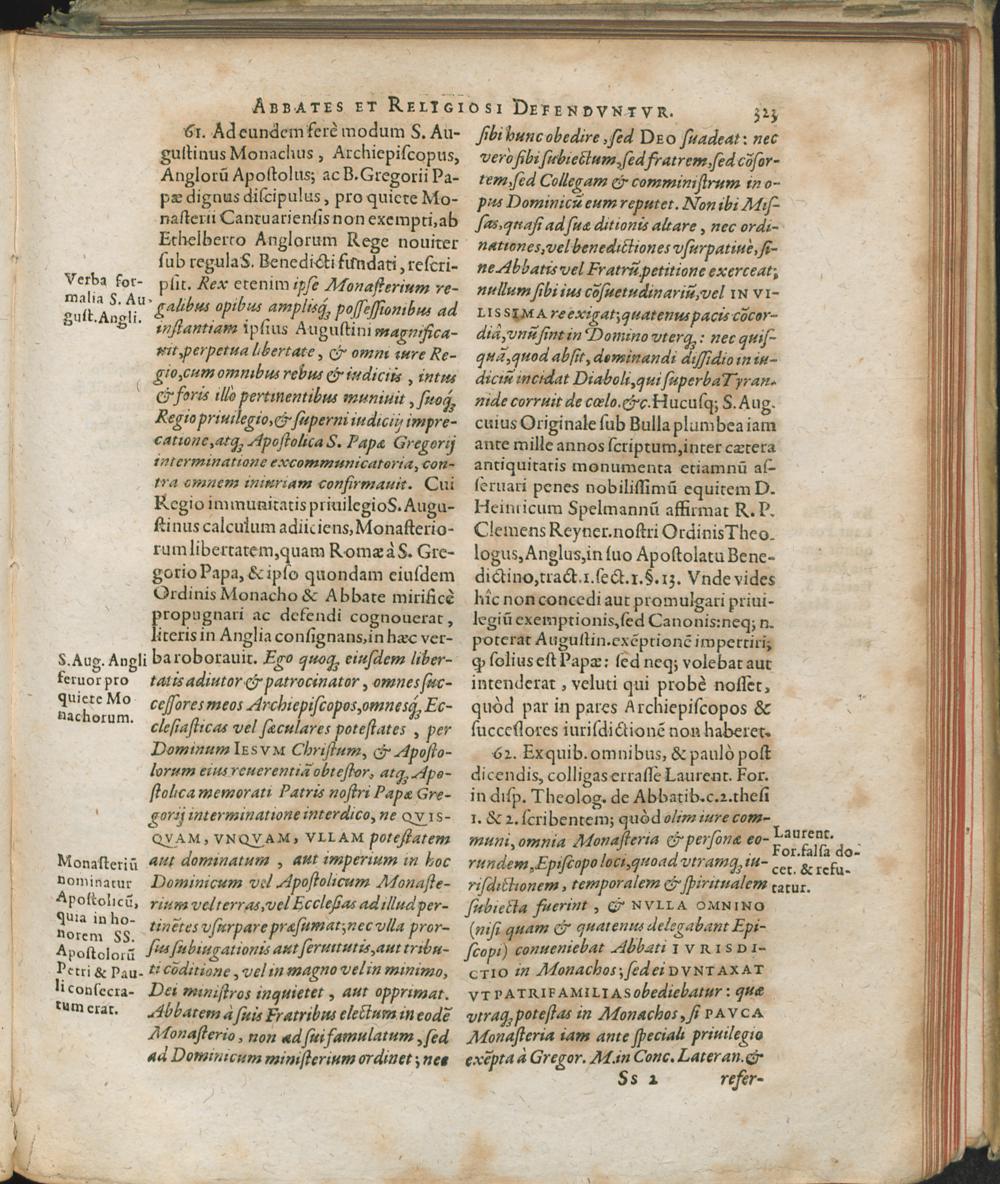 ABBATES ET RELIGIOSI DEFENDVNTVR. 323
61. Ad eundem ferè modum S. Au-
guſtinus Monachus, Archiepiſcopus,
Anglorũ Apoſtolus; ac B. Gregorii Pa-
pæ dignus diſcipulus, pro quiete Mo-
naſterii Cantuarienſis non exempti, ab
Ethelberto Anglorum Rege nouiter
ſub regula S. Benedicti fundati, reſcri-
pſit. Rex etenim ipſe Monaſterium re-
galibus opibus ampliſq́; poſſeſſionibus ad
inſtantiam ipſius Auguſtini magnifica-
uit, perpetua libertate, & omni iure Re-
gio, cum omnibus rebus & iudiciis, intus
& foris illo pertinentibus muniuit, ſuoq́;
Regio priuilegio, & ſuperni iudicij impre-
catione, atq́; Apoſtolica S. Papæ Gregorij
interminatione excommunicatoria, con-
tra omnem iniuriam confirmauit. Cui
Regio immunitatis priuilegio S. Augu-
ſtinus calculum adiiciens, Monaſterio-
rum libertatem, quam Romæ à S. Gre-
gorio Papa, & ipſo quondam eiuſdem
Ordinis Monacho & Abbate mirificè
propugnari ac defendi cognouerat,
literis in Anglia conſignans, in hæc ver-
ba roborauit. Ego quoq́; eiuſdem liber-
tatis adiutor & patrocinator, omnes ſuc-
ceſſores meos Archiepiſcopos, omneſq́; Ec-
cleſiaſticas vel ſæculares poteſtates, per
Dominum IESVM Chriſtum, & Apoſto-
lorum eius reuerentiã obteſtor, atq́; Apo-
ſtolica memorati Patris noſtri Papæ Gre-
gorij interminatione interdico, ne QVIS-
QVAM, VNQVAM, VLLAM poteſtatem
aut dominatum, aut imperium in hoc
Dominicum vel Apoſtolicum Monaſte-
rium vel terras, vel Eccleſias ad illud per-
tinẽtes vſurpare præſumat; nec vlla pror-
ſus ſubiugationis aut ſeruitutis, aut tribu-
ti cõditione, vel in magno vel in minimo,
Dei miniſtros inquietet, aut opprimat.
Abbatem à ſuis Fratribus electum in eodẽ
Monaſterio, non ad ſui famulatum, ſed
ad Dominicum miniſterium ordinet; nec
Verba for-
malia S. Au-
guſt. Angli.
S. Aug. Angli
feruor pro
quiete Mo
nachorum.
Monaſteriũ
nominatur
Apoſtolicũ,
quia in ho-
norem SS.
Apoſtolorũ
Petri & Pau-
li conſecra-
tum erat.
ſibi hunc obedire, ſed DEO ſuadeat: nec
verò ſibi ſubiectum, ſed fratrem, ſed cõſor-
tem, ſed Collegam & comminiſtrum in o-
pus Dominicũ eum reputet. Non ibi Miſ-
ſas, quaſi ad ſuæ ditionis altare, nec ordi-
nationes, vel benedictiones vſurpatiuè, ſi-
ne Abbatis vel Fratrũ petitione exerceat;
nullum ſibi ius cõſuetudinariũ, vel IN VI-
LISSIMA re exigat; quatenus pacis cõcor-
diâ, vnũ ſint in Domino vterq́;: nec quiſ-
quã, quod abſit, dominandi diſſidio in iu-
diciũ incidat Diaboli, qui ſuperba Tyran-
nide corruit de cœlo. &c. Hucuſq; S. Aug.
cuius Originale ſub Bulla plumbea iam
ante mille annos ſcriptum, inter cætera
antiquitatis monumenta etiamnũ aſ-
ſeruari penes nobiliſſimũ equitem D.
Heinricum Spelmannũ affirmat R. P.
Clemens Reyner. noſtri Ordinis Theo-
logus, Anglus, in ſuo Apoſtolatu Bene-
dictino, tract. 1. ſect. 1. §. 13. Vnde vides
hîc non concedi aut promulgari priui-
legiũ exemptionis, ſed Canonis: neq; n.
poterat Auguſtin. exẽptionẽ impertiri;
ꝙ ſolius eſt Papæ: ſed neq; volebat aut
intenderat, veluti qui probè noſſet,
quòd par in pares Archiepiſcopos &
ſucceſſores iuriſdictionẽ non haberet.
62. Ex quib. omnibus, & paulò poſt
dicendis, colligas erraſſe Laurent. For.
in diſp. Theolog. de Abbatib. c. 2. theſi
1. & 2. ſcribentem; quòd olim iure com-
muni, omnia Monaſteria & perſonæ eo-
rundem, Epiſcopo loci, quoad vtramq́; iu-
riſdictionem, temporalem & ſpiritualem
ſubiecta fuerint, & NVLLA OMNINO
(niſi quam & quatenus delegabant Epi-
ſcopi) conueniebat Abbati IVRISDI-
CTIO in Monachos; ſed ei DVNTAXAT
VT PATRIFAMILIAS obediebatur: quæ
vtraq́; poteſtas in Monachos, ſi PAVCA
Monaſteria iam ante ſpeciali priuilegio
exẽpta à Gregor. M. in Conc. Lateran. &
Laurent.
For. falſa do-
cet. & refu-
tatur.
Ss 2 refer-